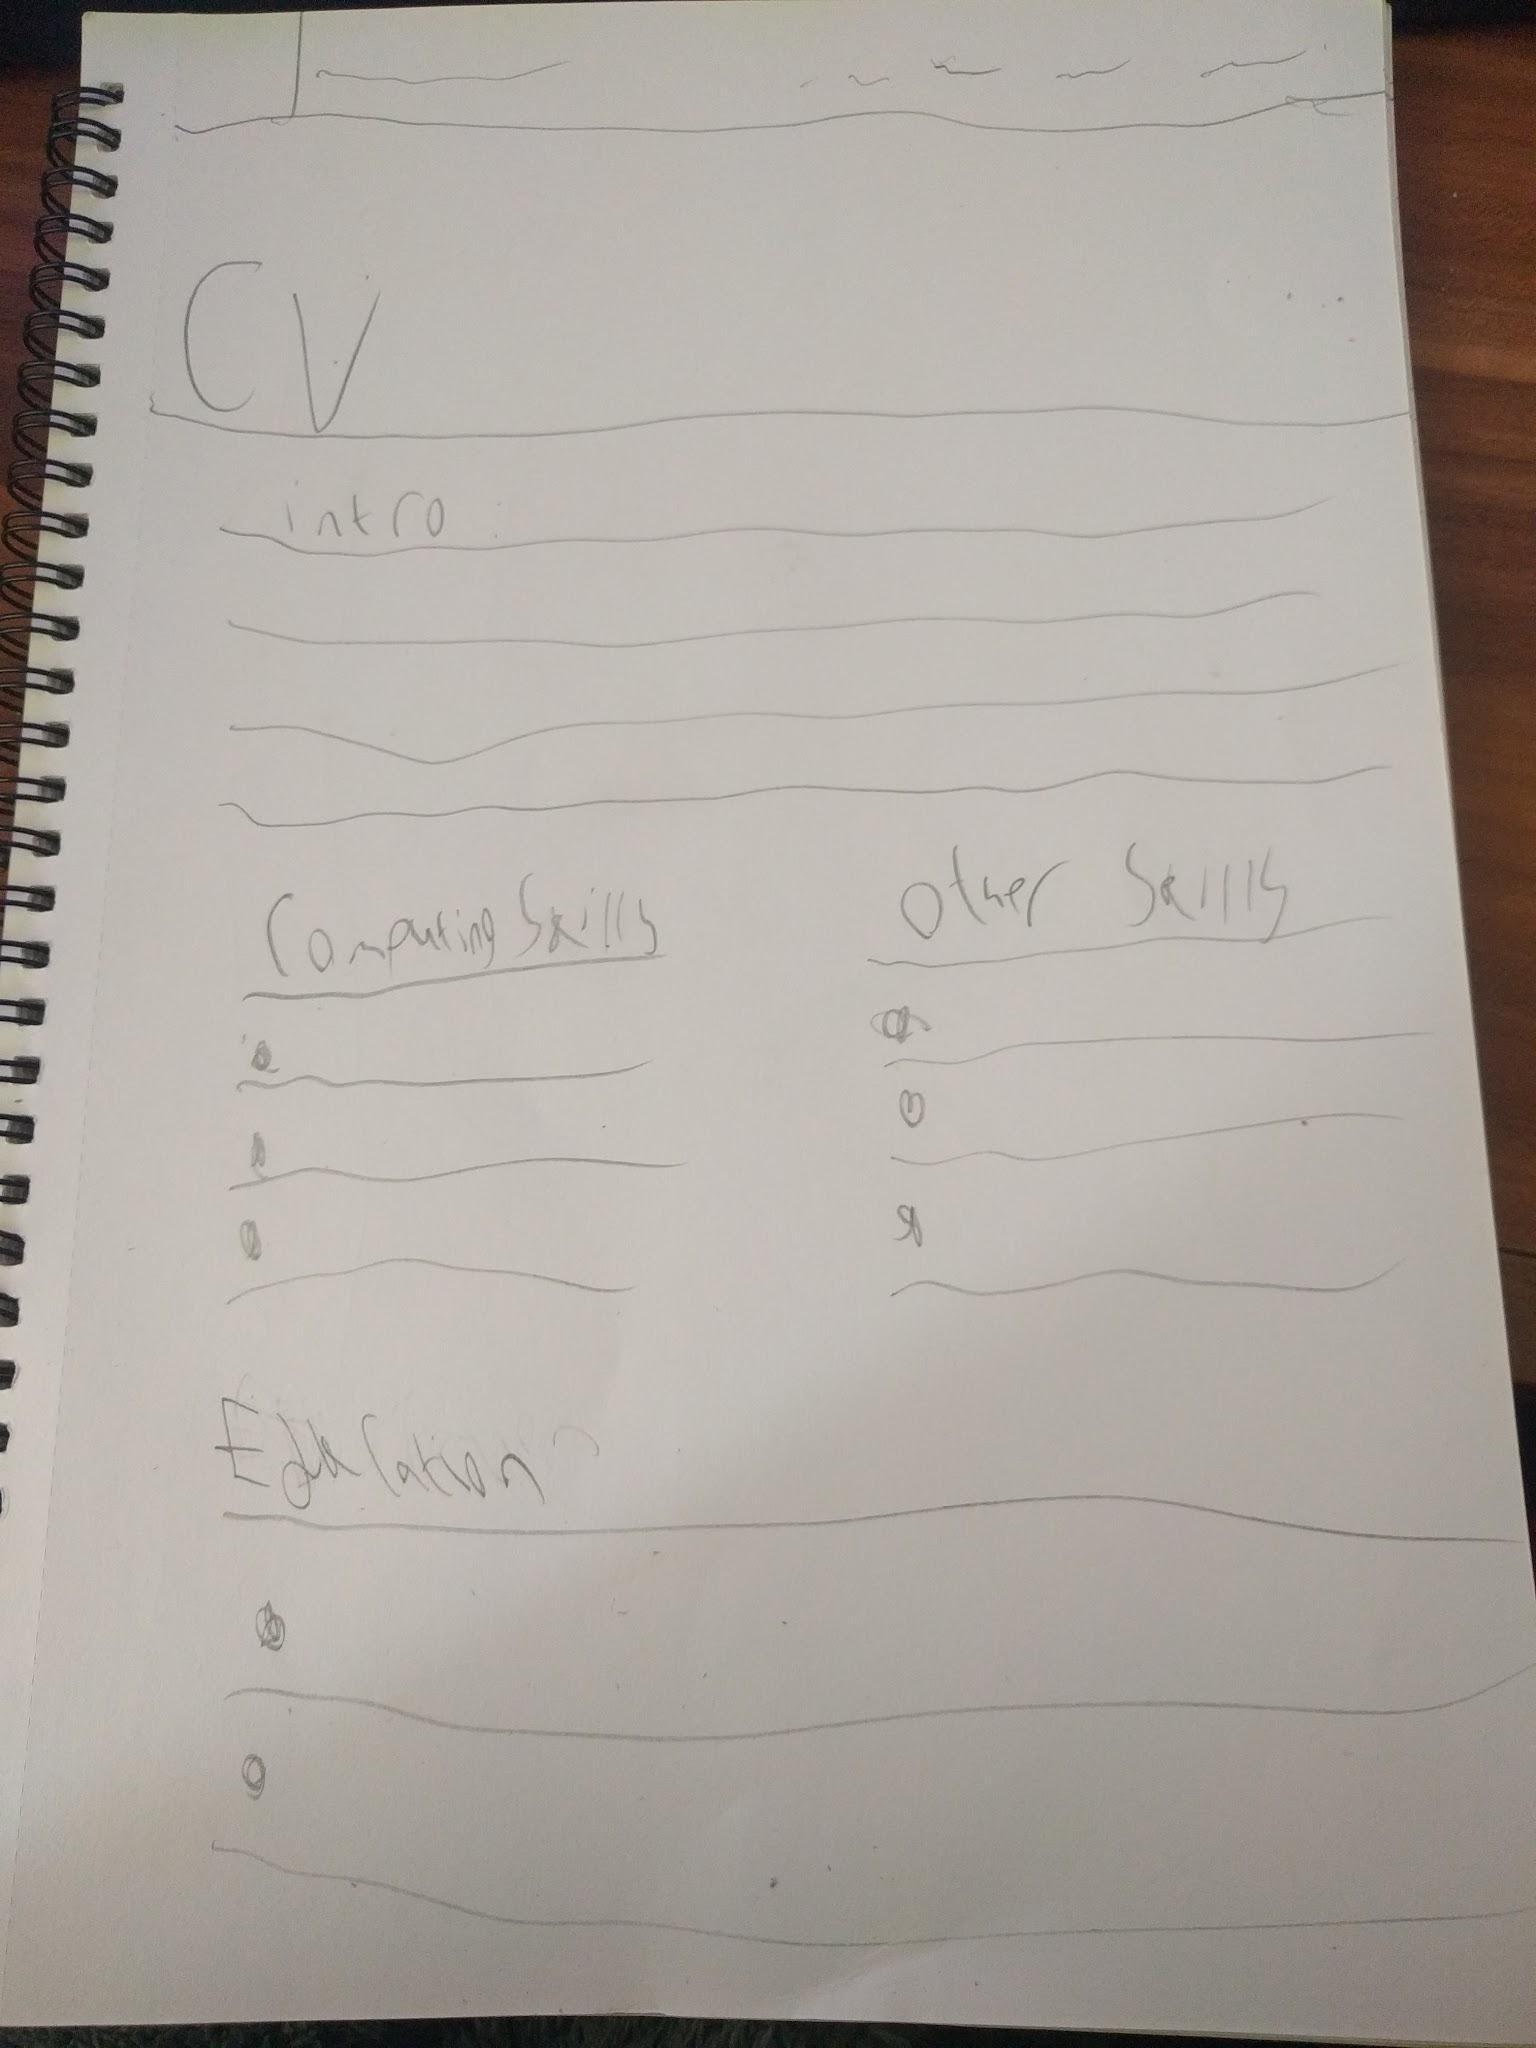 CV
intro
Computing Skills
Other Skills
Education